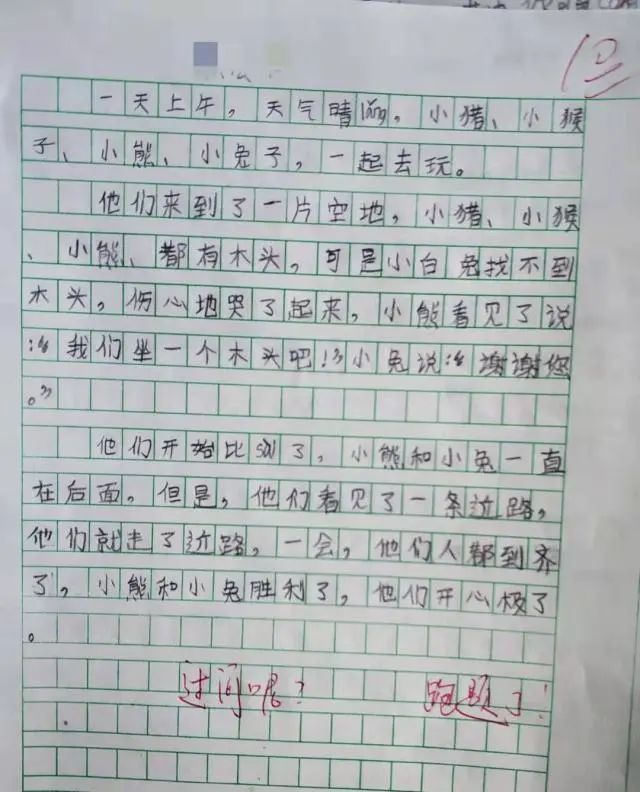 一天上午，天气晴，小猪、小猴
子、小熊、小兔子，一起去玩。
他们来到了一片空地，小猪、小猴
、小熊、都有木头，可是小白兔找不到
木头，伤心地哭了起来，小熊看见了说
：“我们坐一个木头吧！”小兔说：“谢谢您
。”
他们开始比了，小熊和小兔一直
在后面，但是，他们看见了一条近路，
他们就走了近路，一会，他们人都到齐
了，小熊和小兔胜利了，他们开心极了
。
过河呢？ 跑题了！